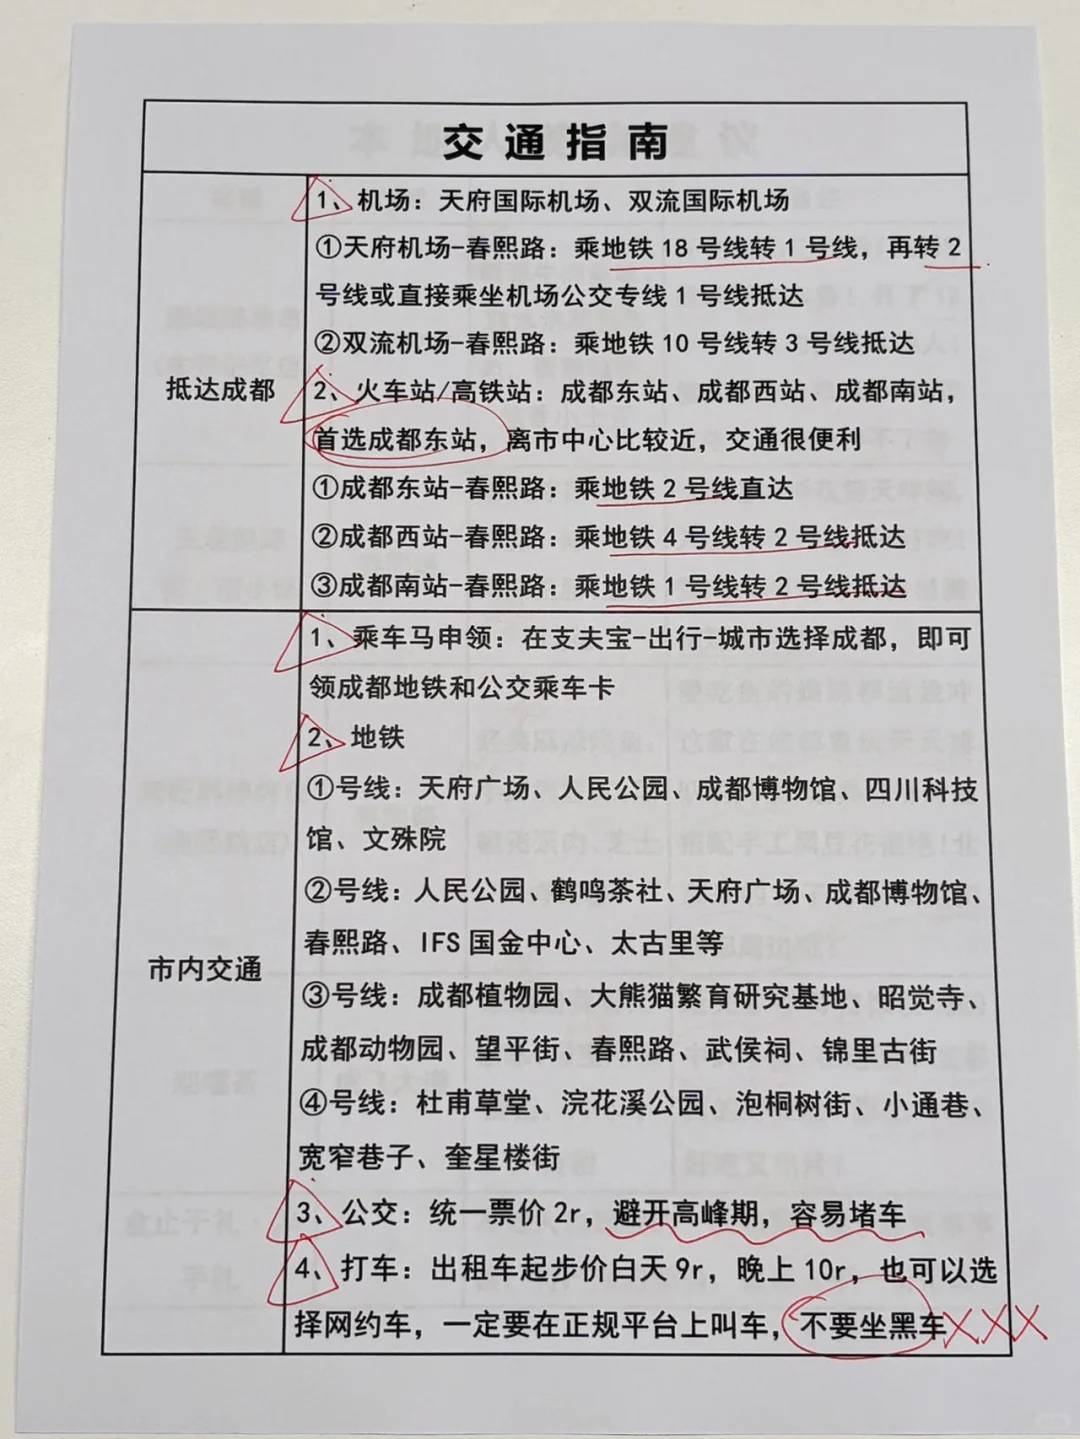 交通指南
抵达成都
1、机场：天府国际机场、双流国际机场
①天府机场-春熙路：乘地铁18号线转1号线，再转2
号线或直接乘坐机场公交专线1号线抵达
②双流机场-春熙路：乘地铁10号线转3号线抵达
2、火车站/高铁站：成都东站、成都西站、成都南站，
首选成都东站，离市中心比较近，交通很便利
①成都东站-春熙路：乘地铁2号线直达
②成都西站-春熙路：乘地铁4号线转2号线抵达
③成都南站-春熙路：乘地铁1号线转2号线抵达
市内交通
1、乘车马申领：在支夫宝-出行-城市选择成都，即可
领成都地铁和公交乘车卡
2、地铁
①号线：天府广场、人民公园、成都博物馆、四川科技
馆、文殊院
②号线：人民公园、鹤鸣茶社、天府广场、成都博物馆、
春熙路、IFS国金中心、太古里等
③号线：成都植物园、大熊猫繁育研究基地、昭觉寺、
成都动物园、望平街、春熙路、武侯祠、锦里古街
④号线：杜甫草堂、浣花溪公园、泡桐树街、小通巷、
宽窄巷子、奎星楼街
3、公交：统一票价2r，避开高峰期，容易堵车
4、打车：出租车起步价白天9r，晚上10r，也可以选
择网约车，一定要在正规平台上叫车，不要坐黑车XXX